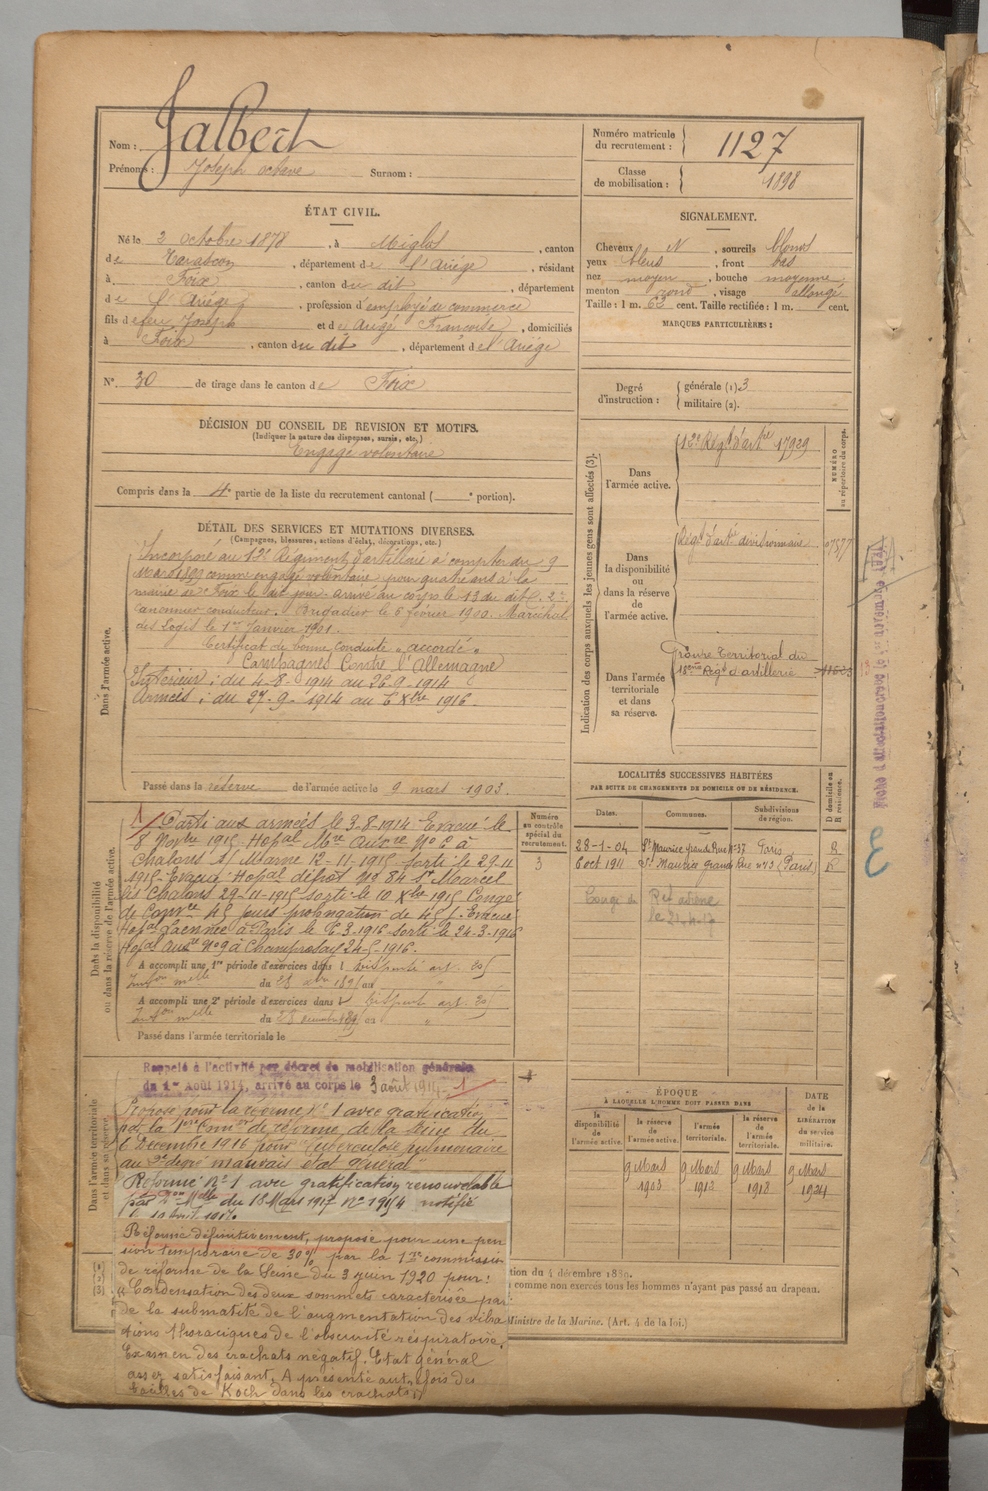 Nom : Jalbert
Prénoms : Joseph octave Surnom :
Numéro matricule du recrutement : 1127
Classe de mobilisation : 1898
ÉTAT CIVIL.
Né le 2 octobre 1878, à Miglos, canton
de Tarascon, département de l'Ariège, résidant
à Foix, canton du dit, département
de l'Ariège, profession d'employé de commerce
fils de feu Joseph et de Augé Francoise, domiciliés
à Foix, canton du dit, département de l'Ariège
N° 30 de tirage dans le canton de Foix
SIGNALEMENT.
Cheveux N, sourcils blonds
yeux bleus, front bas
nez moyen, bouche moyenne
menton rond, visage allongé
Taille : 1 m. 63 cent. Taille rectifiée : 1 m. cent.
MARQUES PARTICULIÈRES :
Degré d'instruction : générale (1) 3
militaire (2).
DÉCISION DU CONSEIL DE REVISION ET MOTIFS.
(Indiquer la nature des dispenses, sursis, etc.)
Engagé volontaire
Compris dans la 4e partie de la liste du recrutement cantonal ( e portion).
DÉTAIL DES SERVICES ET MUTATIONS DIVERSES.
(Campagnes, blessures, actions d'éclat, décorations, etc.)
Dans l'armée active.
Incorporé au 12e Régiment d'artillerie à compter du 9
Mars 1899 comme engagé volontaire pour quatre ans à la
mairie de Foix le dit jour. arrivé au corps le 13 du dit. 2e
canonnier conducteur. Brigadier le 6 février 1900. Maréchal
des Logis le 1er Janvier 1901.
Certificat de bonne conduite "accordé"
Campagnes Contre l'Allemagne
Intérieur : du 4-8-1914 au 26-9-1914
Armées : du 27-9-1914 au 6 Xbre 1916.
Passé dans la réserve de l'armée active le 9 mars 1903.
Indication des corps auxquels les jeunes gens sont affectés (3).
NUMÉRO au répertoire du corps.
Dans l'armée active.
12e Régt d'artie 17929
Dans la disponibilité ou dans la réserve de l'armée active.
Régt d'artie divisionnaire
Dans l'armée territoriale et dans sa réserve.
Groupe Territorial du
d'artillerie
Fiche d'allocation
Dans la disponibilité ou dans la réserve de l'armée active.
Parti aux armées le 3-8-1914 Evacué le
8 Novbre 1915 Hopal Mre Auxre No 6 à
Chalons s/ Marne 12-11-1915 sorti le 29-11
1915 Evacué Hopal dépôt No 84 St Marcel
lès Chalons 29-11-1915 sorti le 10 Xbre 1915 Congé
de Convce 45 jours prolongation de 45 j. Evacué
Hopal Laennec à Paris le 6-3-1916 sorti le 24-3-1916
Hopal Auxre No 9 à Champrosay 24-5-1916.
A accompli une 1re période d'exercices dans l
du au
A accompli une 2e période d'exercices dans l
du au
Passé dans l'armée territoriale le
Numéro au contrôle spécial du recrutement.
3
LOCALITÉS SUCCESSIVES HABITÉES
PAR SUITE DE CHANGEMENTS DE DOMICILE OU DE RÉSIDENCE.
D domicile ou R résidence.
Dates. Communes. Subdivisions de région.
28-1-04 St Maurice Grande Rue No 37 Paris R
6 oct 1911 St Maurice Grande Rue No 73 (Paris) R
Dans l'armée territoriale et dans sa réserve
Rappelé à l'activité par décret de mobilisation générale
du 1er Août 1914, arrivé au corps le 3 août 1914 1
Proposé pour la réforme No 1 avec gratification
par la 1ere Comon de réforme de la Seine du
6 Décembre 1916 pour "tuberculose pulmonaire
au 2e degré mauvais état général"
Réformé No 1 avec gratification renouvelable
par Don Mlle du 18 Mars 1917 No 1954 notifié
Réformé définitivement, proposé pour une pen
sion temporaire de 30% par la 1re commission
de réforme de la Seine du 3 juin 1920 pour :
"Condensation des deux sommets caractérisée par
de la submatité de l'augmentation des vibra
tions thoraciques de l'obscurité respiratoire.
Examen des crachats négatif. Etat général
assez satisfaisant. A présenté autrefois des
bacilles de Koch dans les crachats"
ÉPOQUE
À LAQUELLE L'HOMME DOIT PASSER DANS
la disponibilité de l'armée active. la réserve de l'armée active. l'armée territoriale. la réserve de l'armée territoriale.
DATE de la LIBÉRATION du service militaire.
9 Mars 9 Mars 9 Mars 9 Mars
1903 1913 1918 1924
tion du 4 décembre 1889.
comme non exercés tous les hommes n'ayant pas passé au drapeau.
Ministre de la Marine. (Art. 4 de la loi.)